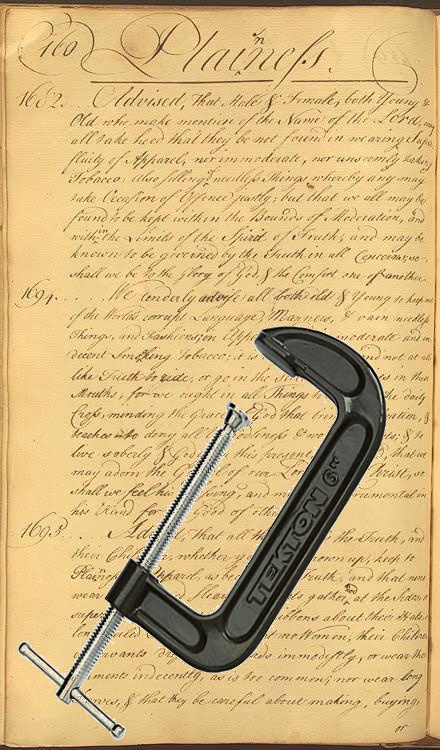 160 Plainness.
1682... Advised, That Male & Female, both Young &
Old who make mention of the Name of the Lord, may
all take heed that they be not found in wearing Supe=
fluity of Apparel, nor immoderate, nor unseemly taking
Tobacco: also selling needless Things whereby any may
take Occasion of Offence justly; but that we all may be
found to be kept within the Bounds of Moderation, and
within the Limits of the Spirit of Truth, and may be
known to be governed by the Truth in all Concerns, so
shall we be to the Glory of God, & the Comfort one of another.
1694.... We tenderly advise all both old & Young to keep out
of the World's corrupt Language, Manners, & vain needless
Things, and Fashions, in App moderate and in
decent Smoking Tobacco; it is and not at all
like Truth to ride, or go in the in their
Mouths, for we ought in all Things to the daily
Cross, minding the Grace God that brin ation, &
teaches to deny all odliness & wo & to
live soberly & Godly in this present that we
may adorn the of our Christ, so
shall we feel his ssing, and m rumental in
his Hand for Good of oth
1695. Ad, that all the Truth, and
their Chil, whether y own up, keep to
Plainess Apparel, as bec ruth, and that none
wear Slee ds gather at the Sides,
supe ibbons about their Hats,
lon led no Women, their Children
vants dr ads immodestly, or wear the
ments indecently, as is too common; nor wear long
rves, & that they be careful about making, buying,
or
TEKTON 6"